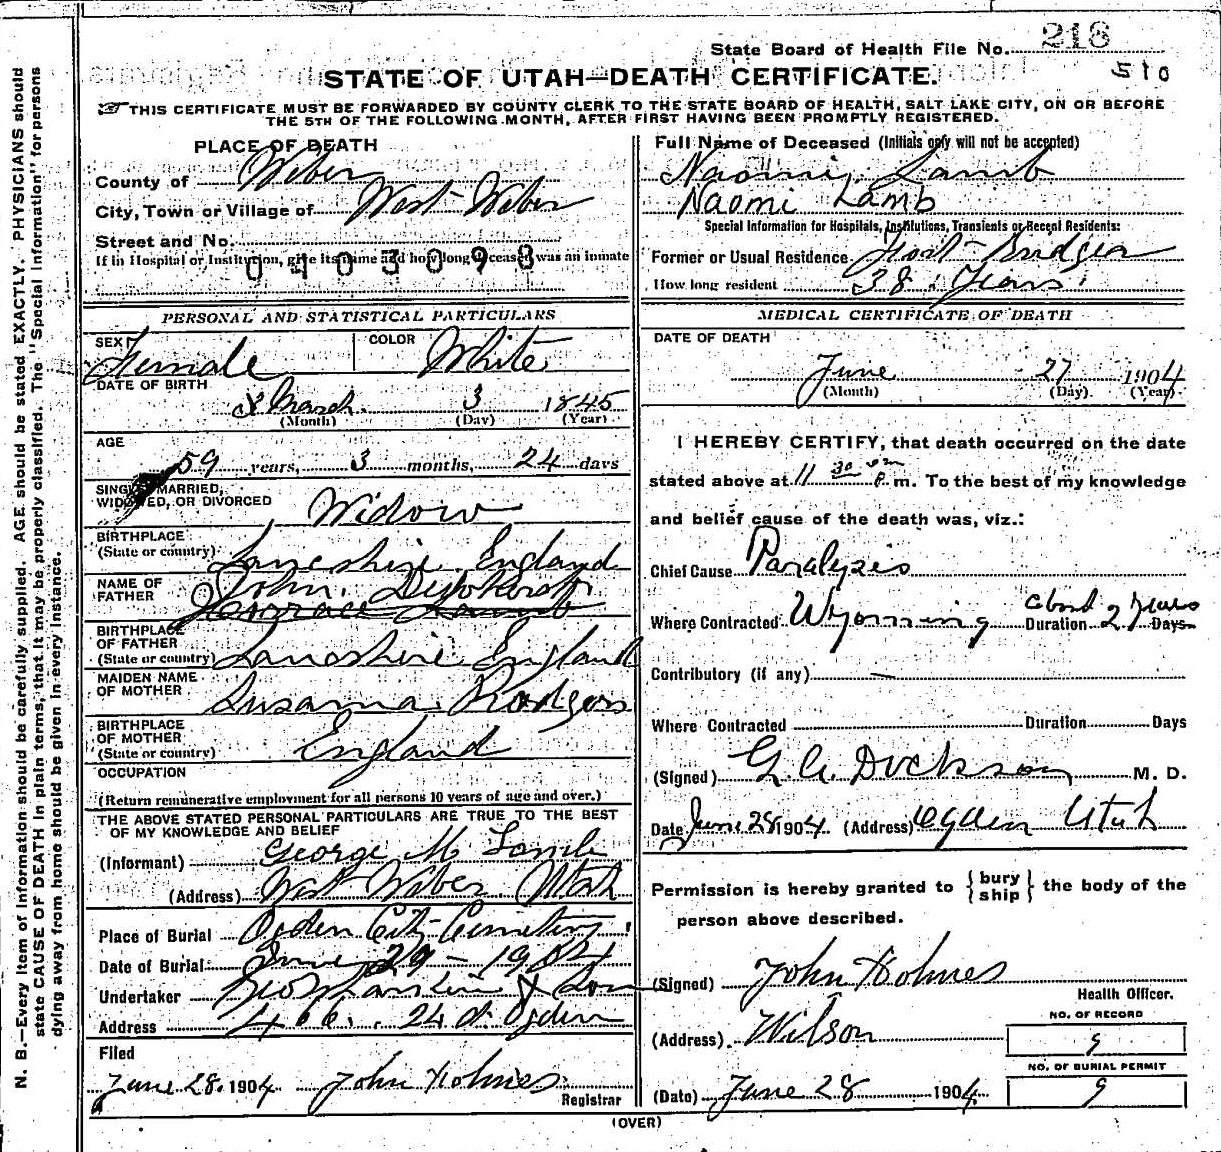 State Board of Health File No. 218
510
STATE OF UTAH—DEATH CERTIFICATE.
THIS CERTIFICATE MUST BE FORWARDED BY COUNTY CLERK TO THE STATE BOARD OF HEALTH, SALT LAKE CITY, ON OR BEFORE
THE 5TH OF THE FOLLOWING MONTH, AFTER FIRST HAVING BEEN PROMPTLY REGISTERED.
N. B.—Every item of information should be carefully supplied. AGE should be stated EXACTLY. PHYSICIANS should
state CAUSE OF DEATH in plain terms, that it may be properly classified. The "Special Information" for persons
dying away from home should be given in every instance.
PLACE OF DEATH
County of Weber
City, Town or Village of West Weber
Street and No.
If in Hospital or Institution, give its name and how long deceased was an inmate
0403098
PERSONAL AND STATISTICAL PARTICULARS
SEX Female
COLOR White
DATE OF BIRTH
March 3 1845
(Month) (Day) (Year)
AGE
59 years, 3 months, 24 days
SINGLE, MARRIED,
WIDOWED, OR DIVORCED Widow
BIRTHPLACE
(State or country) Lancshire England
NAME OF
FATHER John
Horrace Lamb
BIRTHPLACE
OF FATHER
(State or country) Lancshire England
MAIDEN NAME
OF MOTHER Susanna Rodgers
BIRTHPLACE
OF MOTHER
(State or country) England
OCCUPATION
(Return remunerative employment for all persons 10 years of age and over.)
THE ABOVE STATED PERSONAL PARTICULARS ARE TRUE TO THE BEST
OF MY KNOWLEDGE AND BELIEF
(Informant) George M Lamb
(Address) West Weber Utah
Place of Burial Ogden City Cemetery
Date of Burial June 29 - 1904
Undertaker & Son
Address 466 24 st Ogden
Filed
June 28. 1904 John Holmes
Registrar
Full Name of Deceased (Initials only will not be accepted)
Naomi Lamb
Naomi Lamb
Special Information for Hospitals, Institutions, Transients or Recent Residents:
Former or Usual Residence Fort Bridger
How long resident 38 Years
MEDICAL CERTIFICATE OF DEATH
DATE OF DEATH
June 27 1904
(Month) (Day) (Year)
I HEREBY CERTIFY, that death occurred on the date
stated above at 11 30 P. m. To the best of my knowledge
and belief cause of the death was, viz.:
Chief Cause Paralysis
Where Contracted Wyoming Duration about 2 years Days
Contributory (if any) —
Where Contracted Duration Days
(Signed) G. A. Dickson M. D.
Date June 28 1904 (Address) Ogden Utah
Permission is hereby granted to {bury
ship} the body of the
person above described.
(Signed) John Holmes
Health Officer.
(Address) Wilson
(Date) June 28 1904
NO. OF RECORD
9
NO. OF BURIAL PERMIT
9
(OVER)